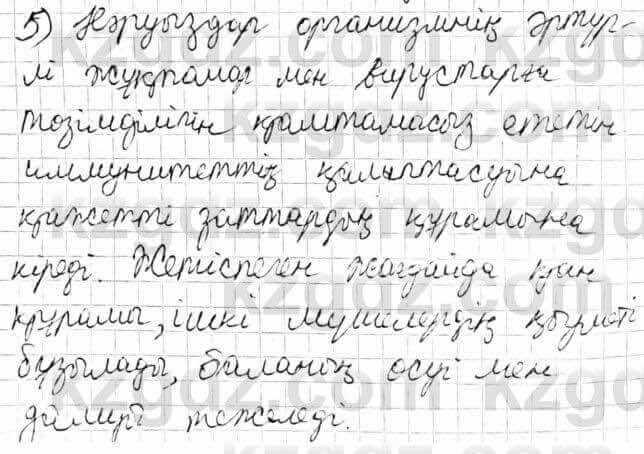 5) Нәруыздар организмнің әртүр-
лі жұқпалар мен вирустарға
төзімділігін қамтамасыз ететін
иммунитеттің қалыптасуына
қажетті заттардың құрамына
кіреді. Жетіспеген жағдайда қан
құрамы, ішкі мүшелердің қызметі
бұзылады, баланың өсуі мен
дамуы тежеледі.